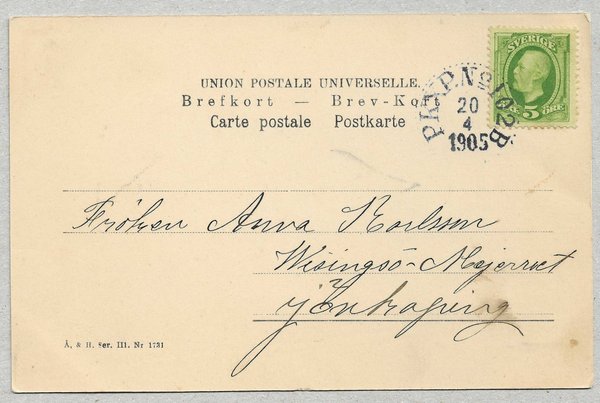 SVERIGE
5 ÖRE
PKXP. No 102 B
20
4
1905
UNION POSTALE UNIVERSELLE.
Brefkort — Brev-Kort
Carte postale Postkarte
Fröken Anna Karlsson
Wisingsö-Mejeriet
Jönköping
Å. & H. Ser. III. Nr 1731